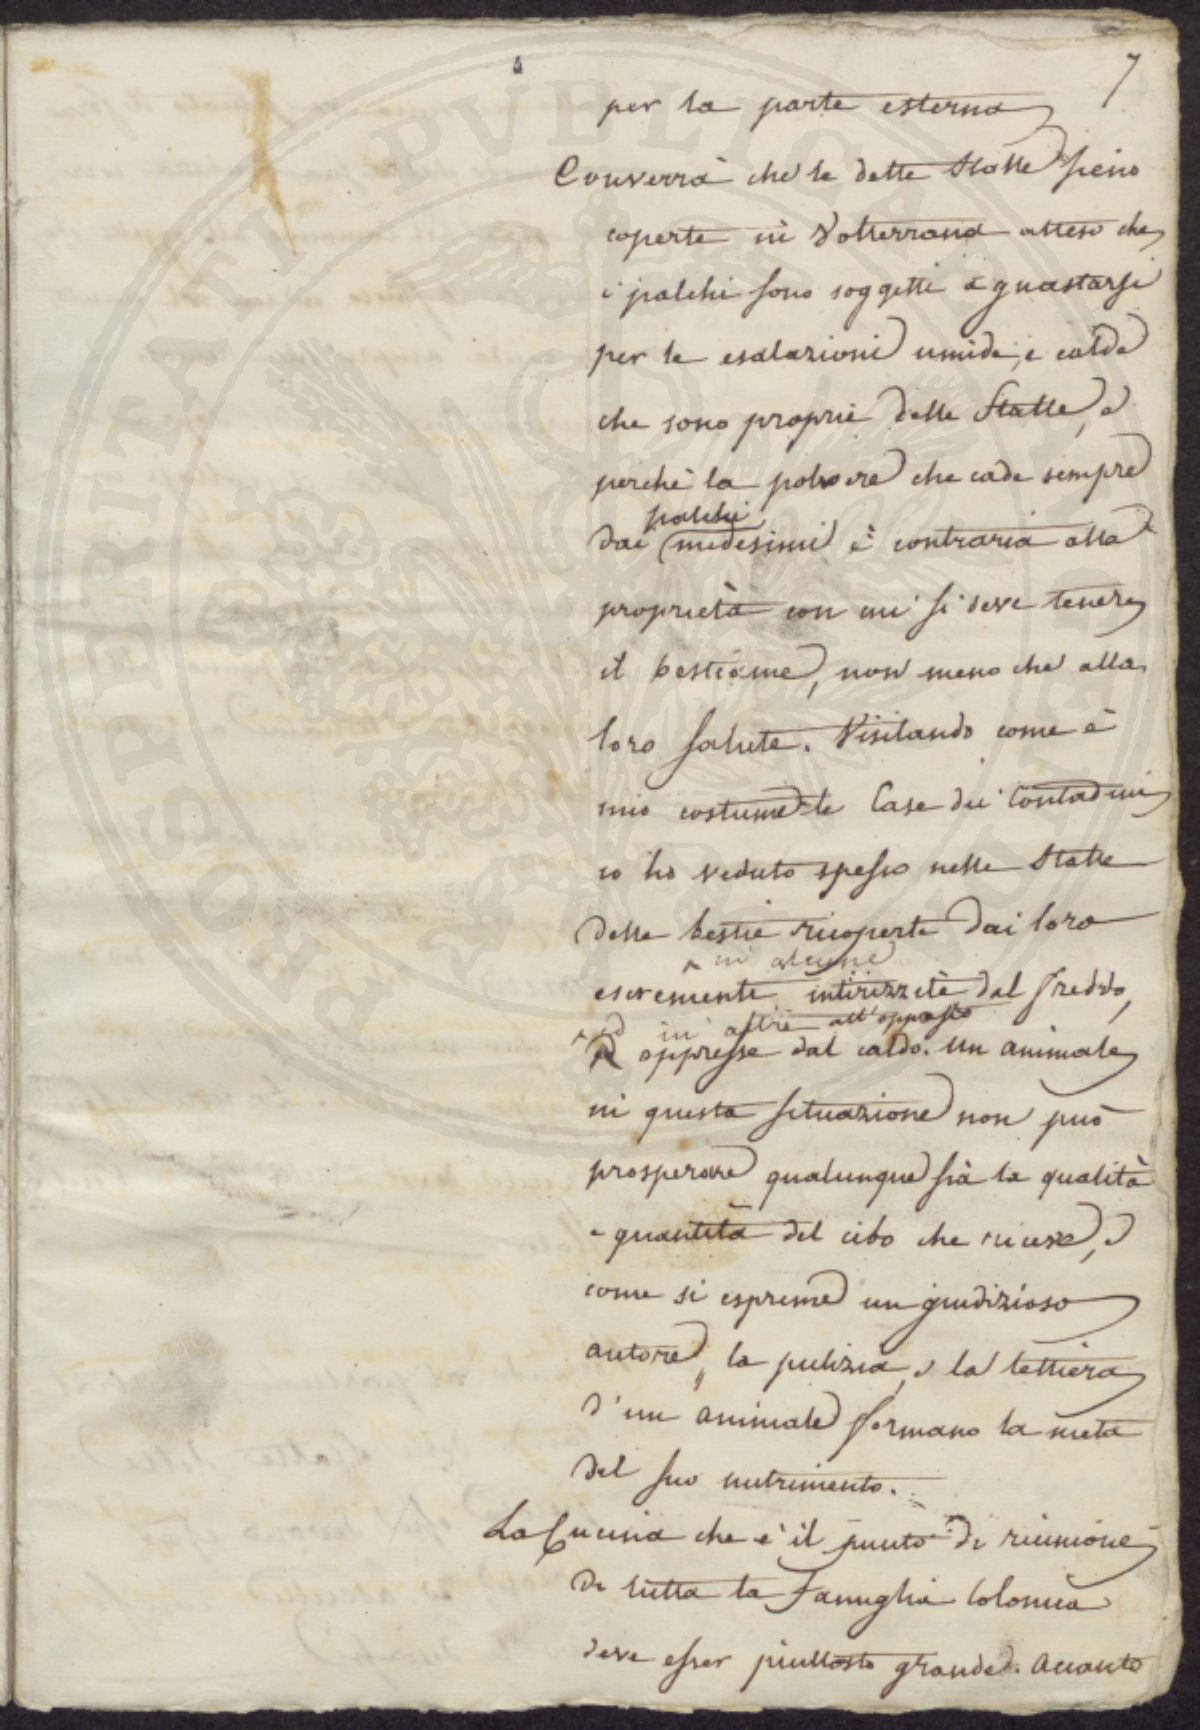 7
per la parte esterna
Converrà che le dette Stalle sieno
coperte in Volterrana atteso che
i palchi sono soggetti a guastarsi
per le esalazioni umide, e calde
che sono proprie delle Stalle, e
perchè la polvere che cade sempre
palchi
dai medesimi è contraria alla
proprietà con cui si deve tenere
il bestiame, non meno che alla
loro salute. Visitando come è
mio costume le Case dei Contadini
io ho veduto spesso nelle Stalle
delle bestie ricoperte dai loro
in alcune
escrementi intirizzite dal freddo,
ed in altre all'opposto
oppresse dal caldo. Un animale
in questa situazione non può
prosperare qualunque sia la qualità
e quantità del cibo che riceve, e
come si esprime un giudizioso
autore, la pulizia, e la lettiera
d'un animale formano la metà
del suo nutrimento.
La Cucina che è il punto di riunione
di tutta la Famiglia Colonica
deve esser piuttosto grande. Accanto
PROSPERITATI PVBLICAE